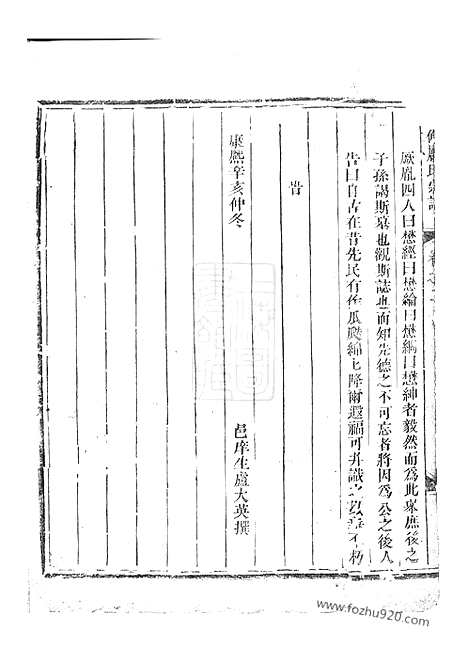 厥胤四人曰懋經曰懋綸曰懋綱曰懋紳者毅然而為此舉庶後之
子孫謁斯墓也觀斯誌也而知先德之不可忘者將因為公之後人
告曰自古在昔先民有作瓜瓞綿綿降爾遐福可弁識之以垂不朽
旹
康熙辛亥仲冬
邑庠生盧大英撰
www.fozhu920.com